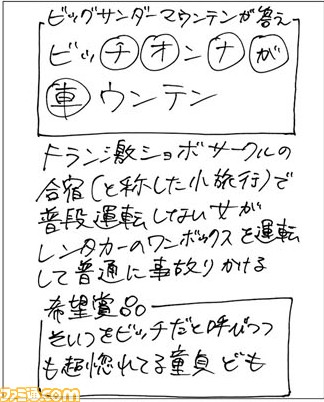 ビッグサンダーマウンテンが答え
ビッチオンナが
車ウンテン
ドラン激ショボサークルの
合宿(と称した小旅行)で
普段運転しない女が
レンタカーのワンボックスを運転
して普通に事故りかける
希望賞品
そいつをビッチだと呼びつつ
も超惚れてる童貞ども
ファミ通.com